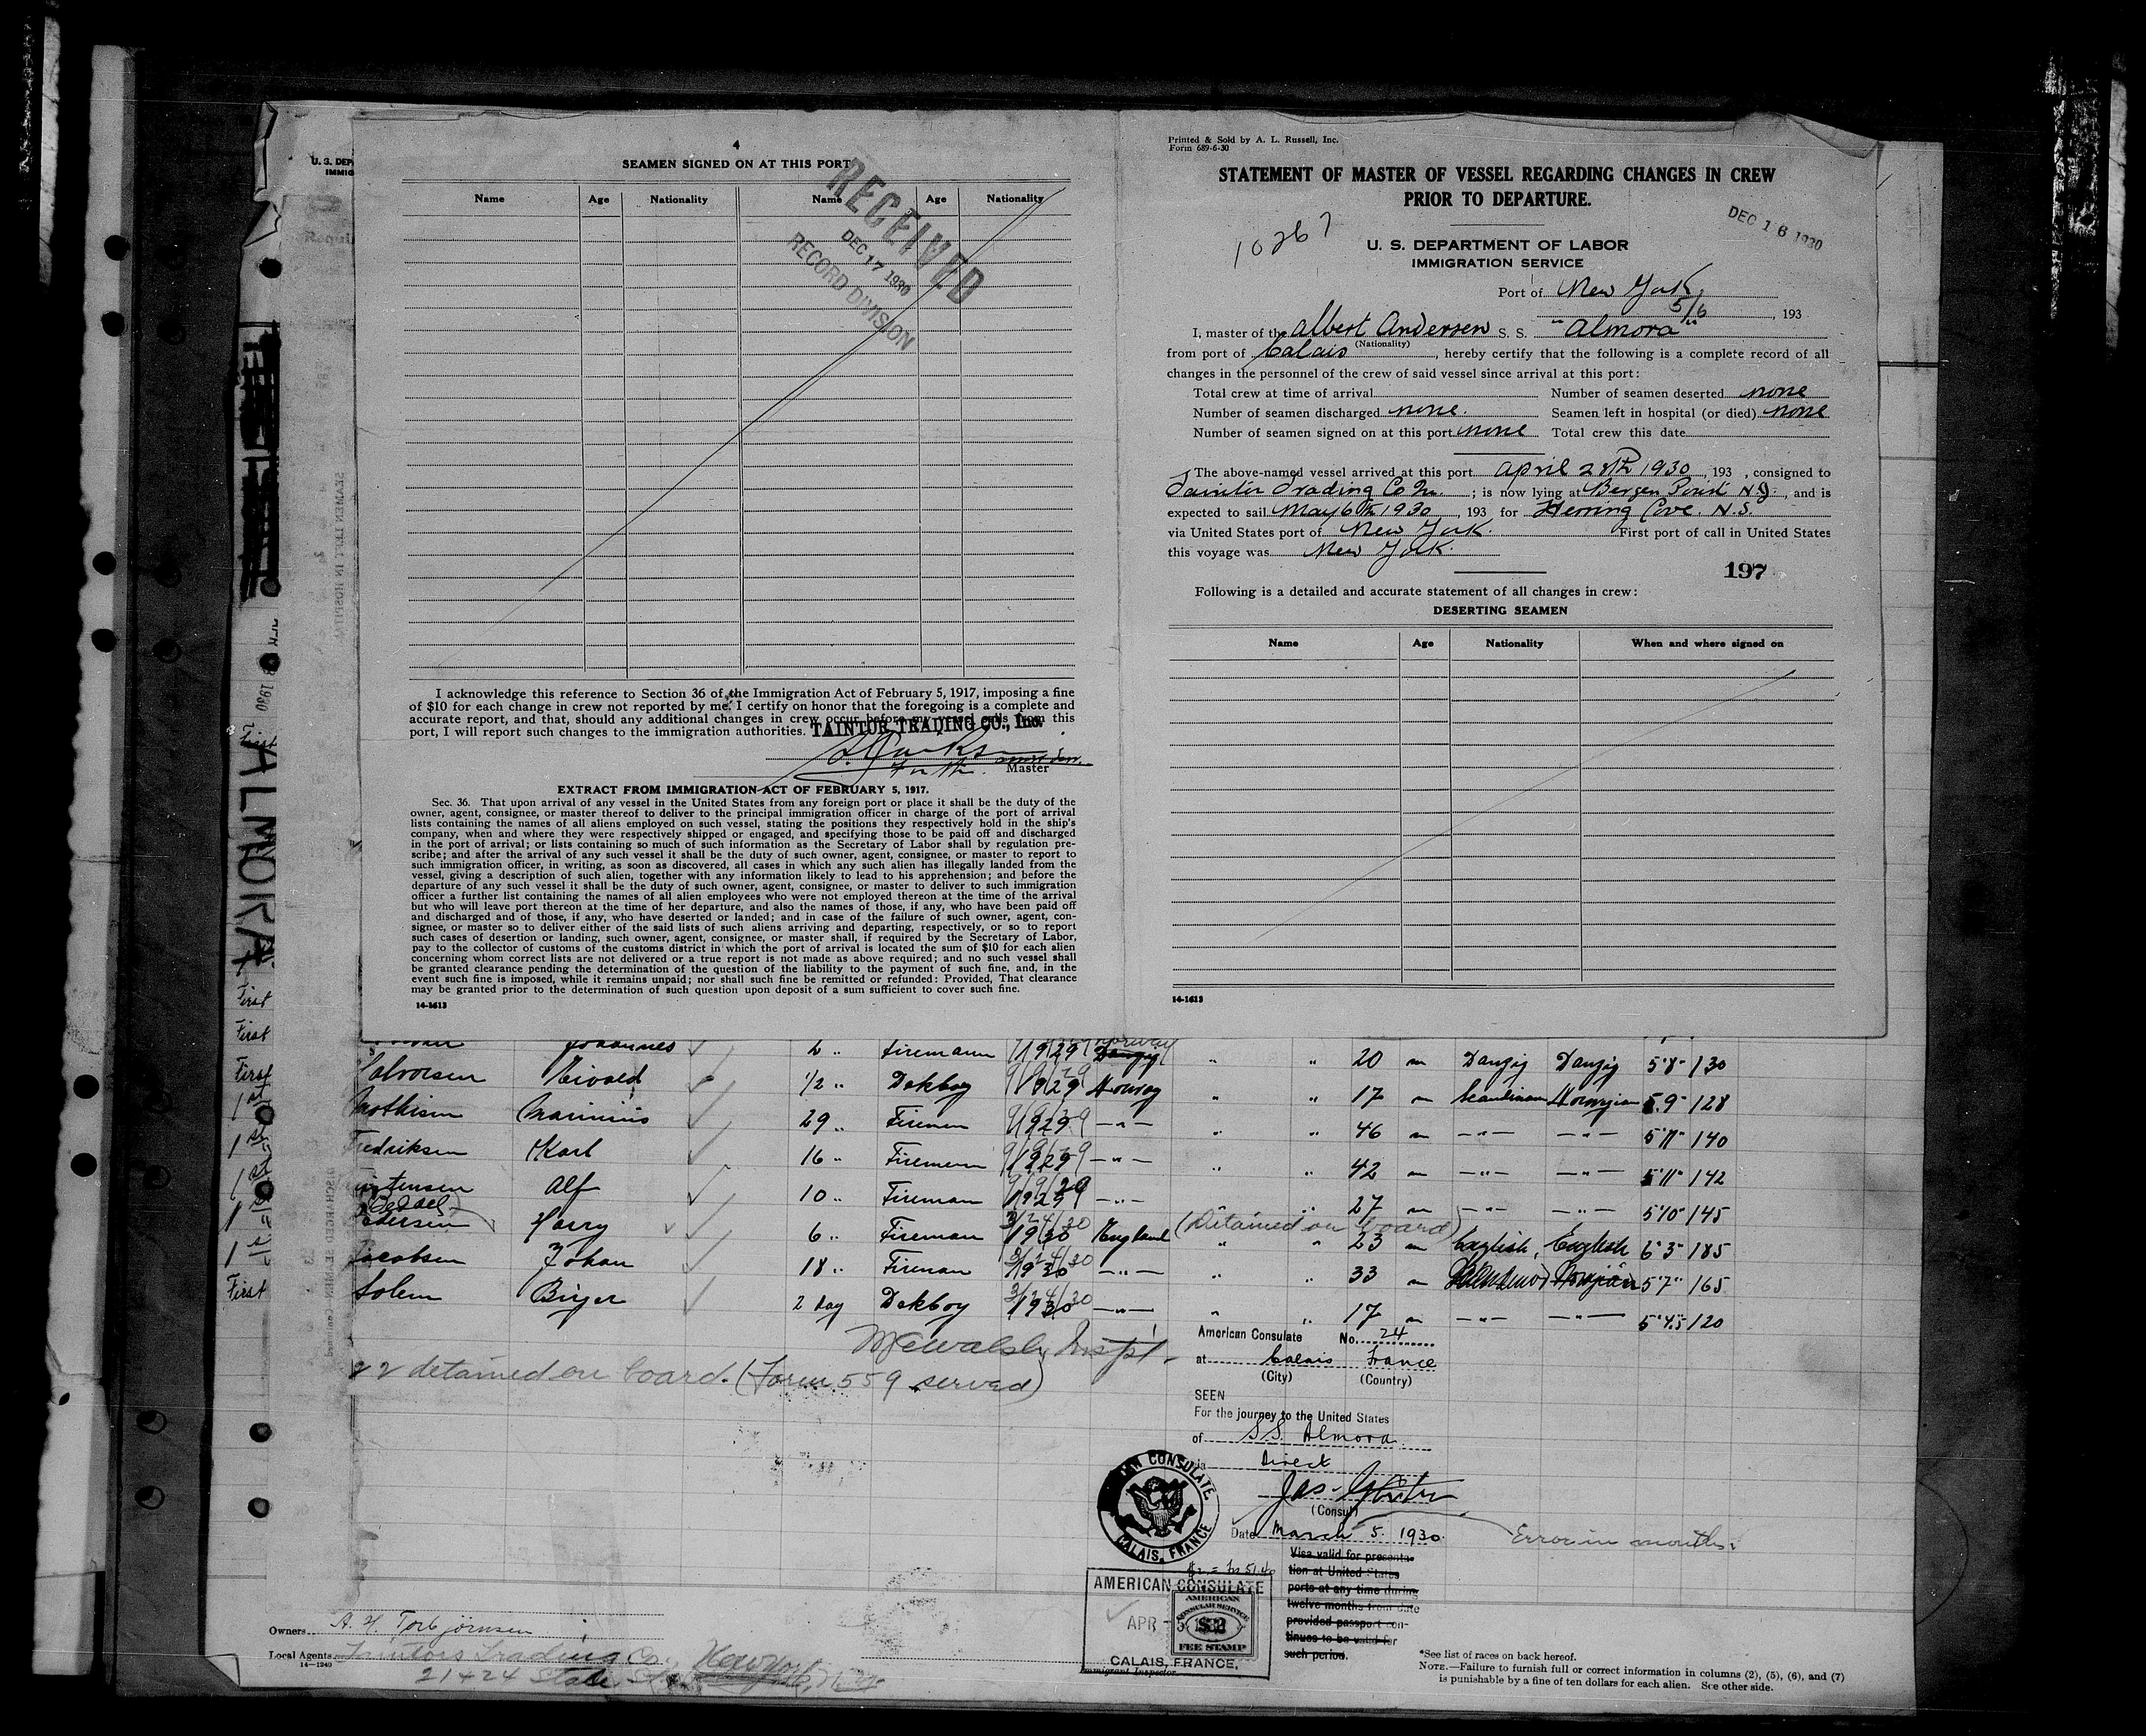 4
SEAMEN SIGNED ON AT THIS PORT
Name Age Nationality Name Age Nationality
RECEIVED
DEC 17 1930
RECORD DIVISION
I acknowledge this reference to Section 36 of the Immigration Act of February 5, 1917, imposing a fine
of $10 for each change in crew not reported by me. I certify on honor that the foregoing is a complete and
accurate report, and that, should any additional changes in crew occur before my vessel sails from this
port, I will report such changes to the immigration authorities.
TAINTOR TRADING CO., Inc.
Master
EXTRACT FROM IMMIGRATION ACT OF FEBRUARY 5, 1917.
Sec. 36. That upon arrival of any vessel in the United States from any foreign port or place it shall be the duty of the
owner, agent, consignee, or master thereof to deliver to the principal immigration officer in charge of the port of arrival
lists containing the names of all aliens employed on such vessel, stating the positions they respectively hold in the ship's
company, when and where they were respectively shipped or engaged, and specifying those to be paid off and discharged
in the port of arrival; or lists containing so much of such information as the Secretary of Labor shall by regulation pre-
scribe; and after the arrival of any such vessel it shall be the duty of such owner, agent, consignee, or master to report to
such immigration officer, in writing, as soon as discovered, all cases in which any such alien has illegally landed from the
vessel, giving a description of such alien, together with any information likely to lead to his apprehension; and before the
departure of any such vessel it shall be the duty of such owner, agent, consignee, or master to deliver to such immigration
officer a further list containing the names of all alien employees who were not employed thereon at the time of the arrival
but who will leave port thereon at the time of her departure, and also the names of those, if any, who have been paid off
and discharged and of those, if any, who have deserted or landed; and in case of the failure of such owner, agent, con-
signee, or master so to deliver either of the said lists of such aliens arriving and departing, respectively, or so to report
such cases of desertion or landing, such owner, agent, consignee, or master shall, if required by the Secretary of Labor,
pay to the collector of customs of the customs district in which the port of arrival is located the sum of $10 for each alien
concerning whom correct lists are not delivered or a true report is not made as above required; and no such vessel shall
be granted clearance pending the determination of the question of the liability to the payment of such fine, and, in the
event such fine is imposed, while it remains unpaid; nor shall such fine be remitted or refunded: Provided, That clearance
may be granted prior to the determination of such question upon deposit of a sum sufficient to cover such fine.
14-1613
Printed & Sold by A. L. Russell, Inc.
Form 689-6-30
STATEMENT OF MASTER OF VESSEL REGARDING CHANGES IN CREW
PRIOR TO DEPARTURE.
DEC 16 1930
10267
U. S. DEPARTMENT OF LABOR
IMMIGRATION SERVICE
Port of New York
5/6, 193
I, master of the Albert Andersen S. S. "Almora"
(Nationality)
from port of Calais, hereby certify that the following is a complete record of all
changes in the personnel of the crew of said vessel since arrival at this port:
Total crew at time of arrival Number of seamen deserted none
Number of seamen discharged none. Seamen left in hospital (or died) none
Number of seamen signed on at this port none Total crew this date
The above-named vessel arrived at this port April 28th 1930, 193 , consigned to
Taintor Trading Co In. ; is now lying at Bergen Point N.J., and is
expected to sail May 6th 1930, 193 for Herring Cove. N.S.
via United States port of New York. First port of call in United States
this voyage was New York.
197
Following is a detailed and accurate statement of all changes in crew:
DESERTING SEAMEN
Name Age Nationality When and where signed on
14-1613
U. S. DEP
IMMIG
ALMORA
Johannes 2 " Firemann 1929 Danzig " " 20 m Danzig Danzig 5'8" 130
Eivald 1/2 " Dekboy 1929 Norway " " 17 m Scandinav Norwgian 5.9" 128
Mathisen Marinius 29 " Firemen 1929 —"— " " 46 m —"— —"— 5'11" 140
Fredriksen Karl 16 " Firemenn 1929 —"— " " 42 m —"— —"— 5'11" 142
Alf 10 " Fireman 1929 —"— 27 m —"— —"— 5'10" 145
Pedersen Harry 6 " Fireman 1930 England (Detained on board) 23 m English, English 6'3" 185
Jacobsen Johan 18 " Fireman 1930 —"— " " 33 m 5'7" 165
Solem Birger 2 day Dekboy 1930 —"— " " 17 m —"— —"— 5'4.5" 120
First
McWalsh Inspt.
22 detained on board. (Form 559 served)
American Consulate No. 24
at Calais France
(City) (Country)
SEEN
For the journey to the United States
of SS. Almora.
via Direct
(Consul)
Date March 5. 1930. Error in month.
Visa valid for presenta-
tion at United States
ports at any time during
twelve months from date
provided passport con-
tinues to be valid for
such period.
CONSULATE
CALAIS, FRANCE
AMERICAN CONSULATE
APR
AMERICAN
CONSULAR SERVICE
$2
FEE STAMP
CALAIS, FRANCE.
Immigrant Inspector.
Owners A. H. Torbjörnsen
Local Agents Taintors Trading Co.
14—1240
21+24 State St. New York
*See list of races on back hereof.
NOTE.—Failure to furnish full or correct information in columns (2), (5), (6), and (7)
is punishable by a fine of ten dollars for each alien. See other side.